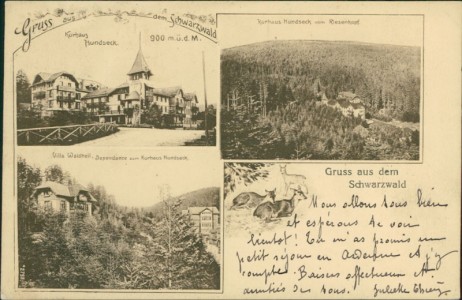 Gruss aus dem Schwarzwald
Kurhaus Hundseck.
900 m.ü.d.M.
Kurhaus Hundseck vom Riesenkopf
Villa Waldheil, Dependance zum Kurhaus Hundseck.
Gruss aus dem
Schwarzwald
Nous allons tous bien
et espérons te voir
bientôt! Tu m'as promis un
petit séjour en Ardenne et j'y
compte. Baisers affectueux et
amitiés de tous.